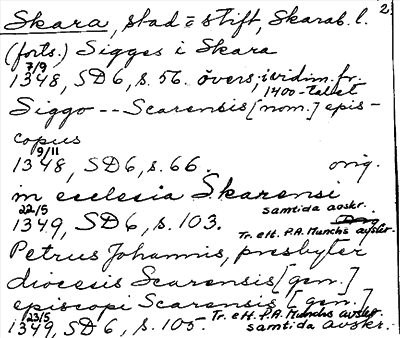 Skara, stad o stift, Skarab. l. 2.
(forts.) Sigges i Skara
7/9
1348, SD 6, s. 56. övers. i vidim. fr.
1400-talet
Siggo -- Scarensis [nom.] epis-
copus
9/11
1348, SD 6, s. 66. orig.
in ecclesia Skarensi
22/5 samtida avskr.
1349, SD 6, s. 103.
Tr. eft. P.A. Munchs avskr.
Petrus Johannis, presbyter
diocesis Scarensis [gen.]
episcopi Scarensis [gen.]
23/5 Tr. eft. P.A. Munchs avskr.
1349, SD 6, s. 105. samtida avskr.